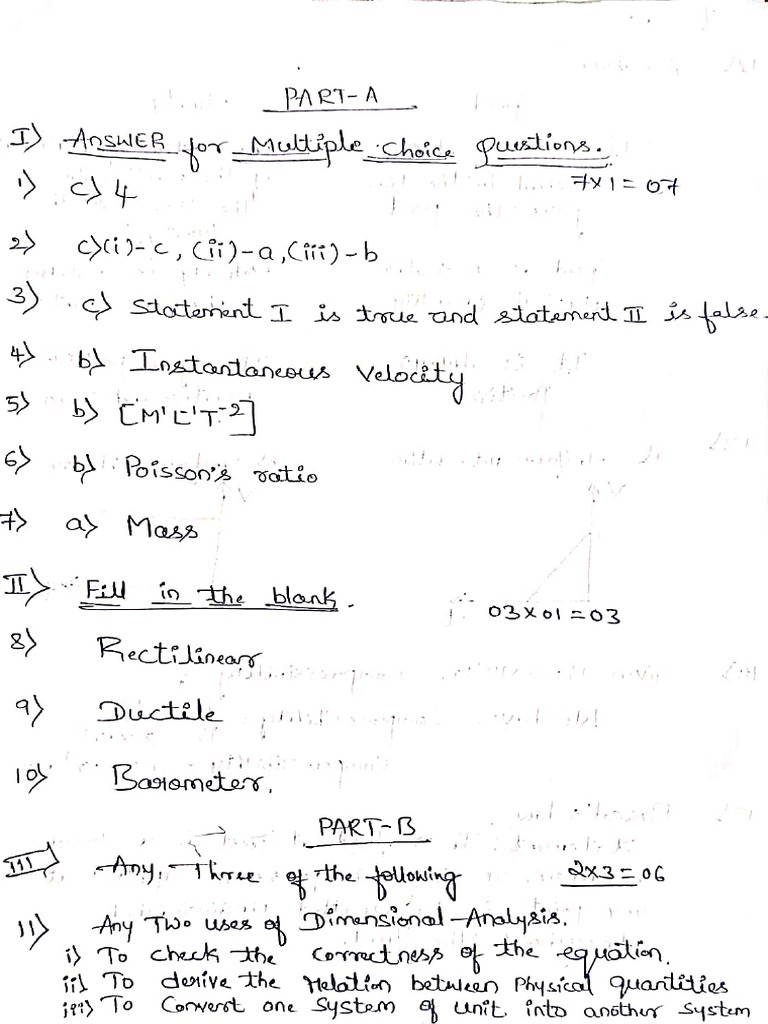 PART-A
I) ANSWER for Multiple Choice Questions.
7x1=07
1) c) 4
2) c)(i)-c, (ii)-a, (iii)-b
3) c) Statement I is true and statement II is false.
4) b) Instantaneous Velocity
5) b) [M¹L¹T⁻²]
6) b) Poisson's ratio
7) a) Mass
II) Fill in the blank.
03x01=03
8) Rectilinear
9) Ductile
10) Barometer.
PART-B
III) Any, Three of the following 2x3=06
11) Any Two uses of Dimensional Analysis.
i) To check the correctness of the equation.
ii) To derive the relation between Physical quantities
iii) To Convert one System of unit into another system